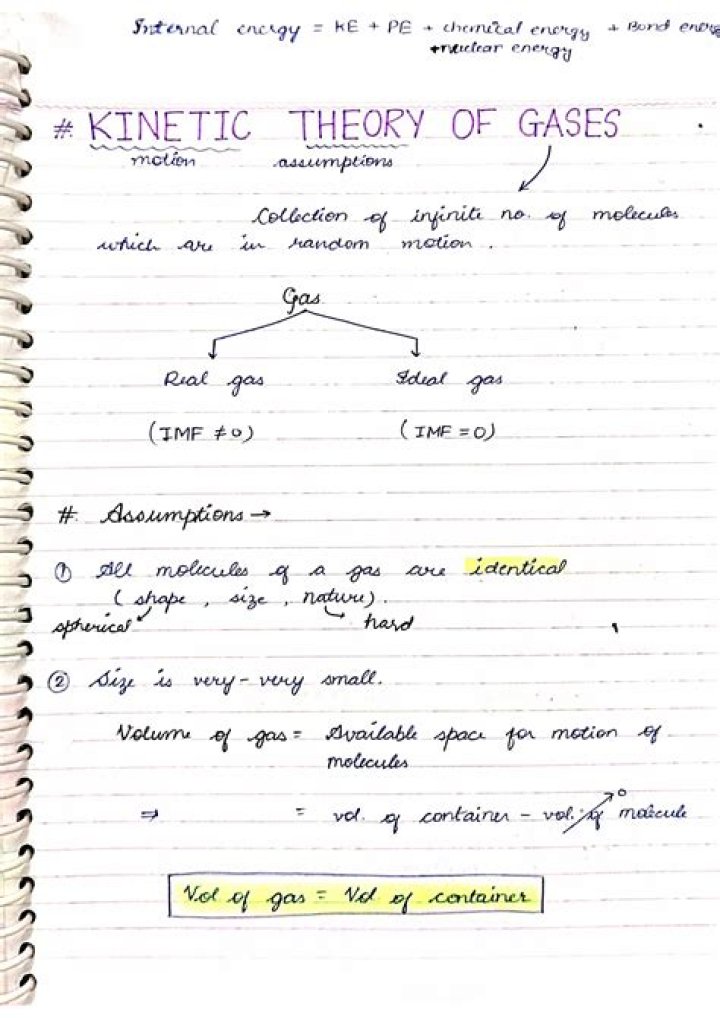 Internal energy = KE + PE + chemical energy + Bond energ
+nuclear energy
# KINETIC THEORY OF GASES
motion assumptions
Collection of infinite no. of molecules
which are in random motion.
Gas
Real gas Ideal gas
(IMF ≠ 0) (IMF = 0)
# Assumptions →
① All molecules of a gas are identical
(shape, size, nature).
spherical hard
② Size is very-very small.
Volume of gas = Available space for motion of
molecules
⇒ = vol. of container - vol. of molecule 0
Vol of gas = Vol of container